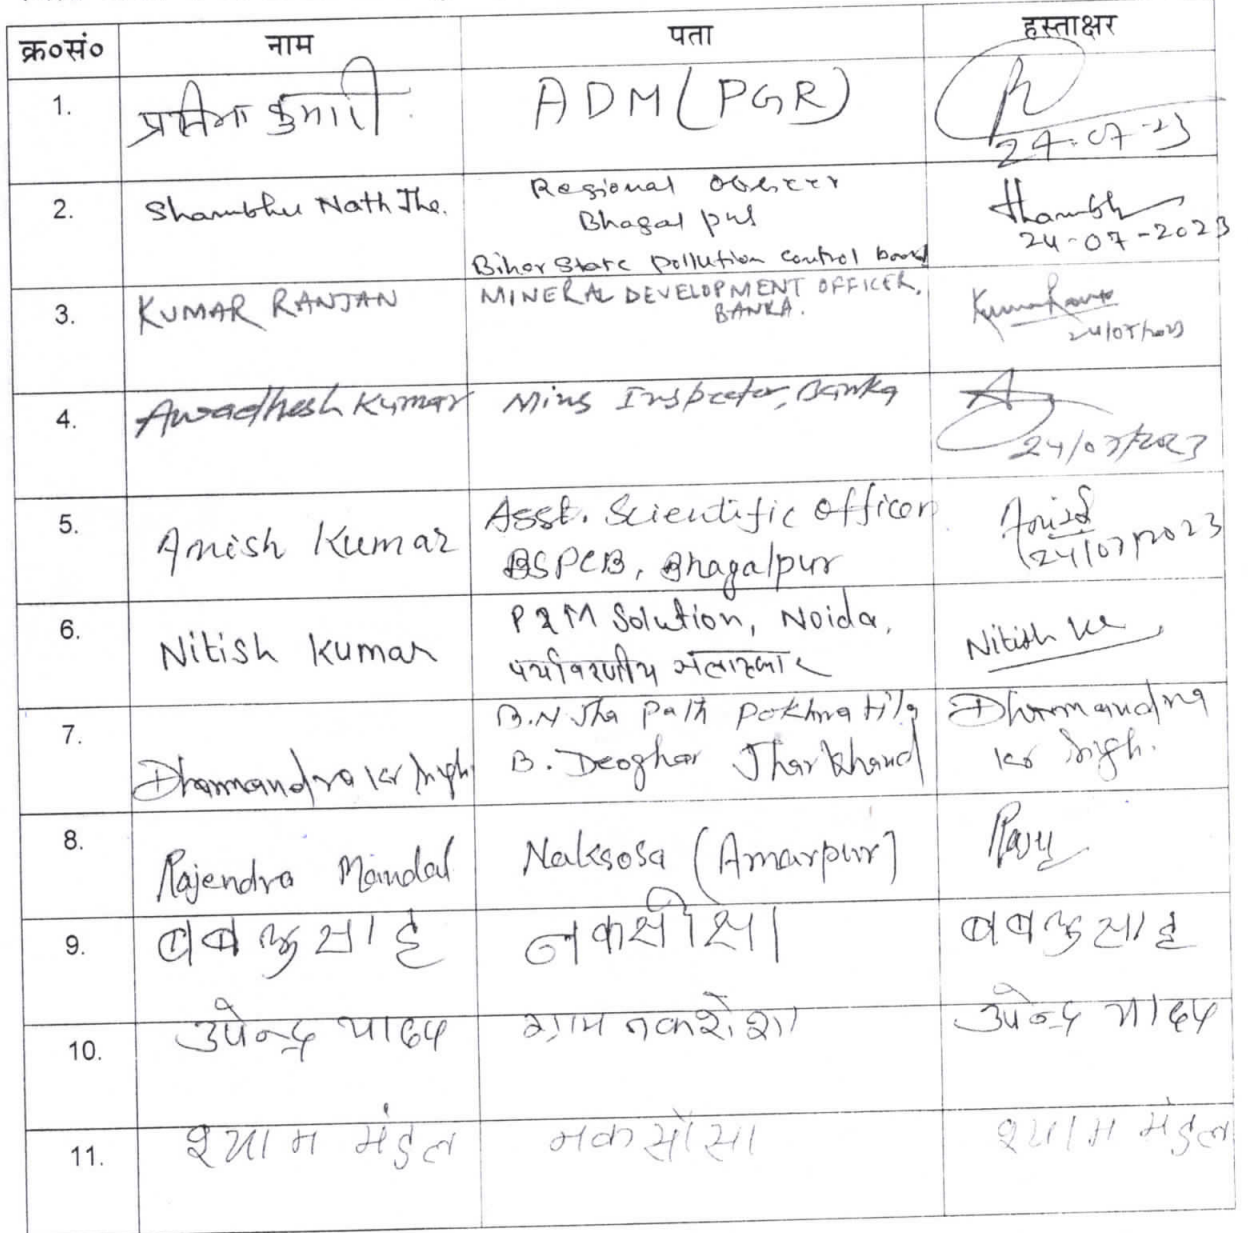 क्र०सं० नाम पता हस्ताक्षर
1. कुमारी ADM (PGR)
24-07-23
2. Shambhu Nath Jha. Regional Officer
Bhagalpur
Bihar State Pollution control board
Shambh
24-07-2023
3. KUMAR RANJAN MINERAL DEVELOPMENT OFFICER,
BANKA.
Kumar Ranjan
24/07/2023
4. Awadhesh Kumar Mines Inspector, Banka
24/07/2023
5. Anish Kumar Asst. Scientific Officer
BSPCB, Bhagalpur
Anish
24/07/2023
6. Nitish Kumar P&M Solution, Noida,
पर्यावरणीय सलाहकार
Nitish Kr
7. Dharmandra kr singh B.N Jha Path Pokhna Tila
B. Deoghar Jharkhand
Dharmandra
kr singh.
8. Rajendra Mandal Naksosa (Amarpur)
9. बबलु साह नकसोसा बबलु साह
10. उपेन्द्र यादव ग्राम नकशेशा उपेन्द्र यादव
11. श्याम मंडल नकसोसा श्याम मंडल